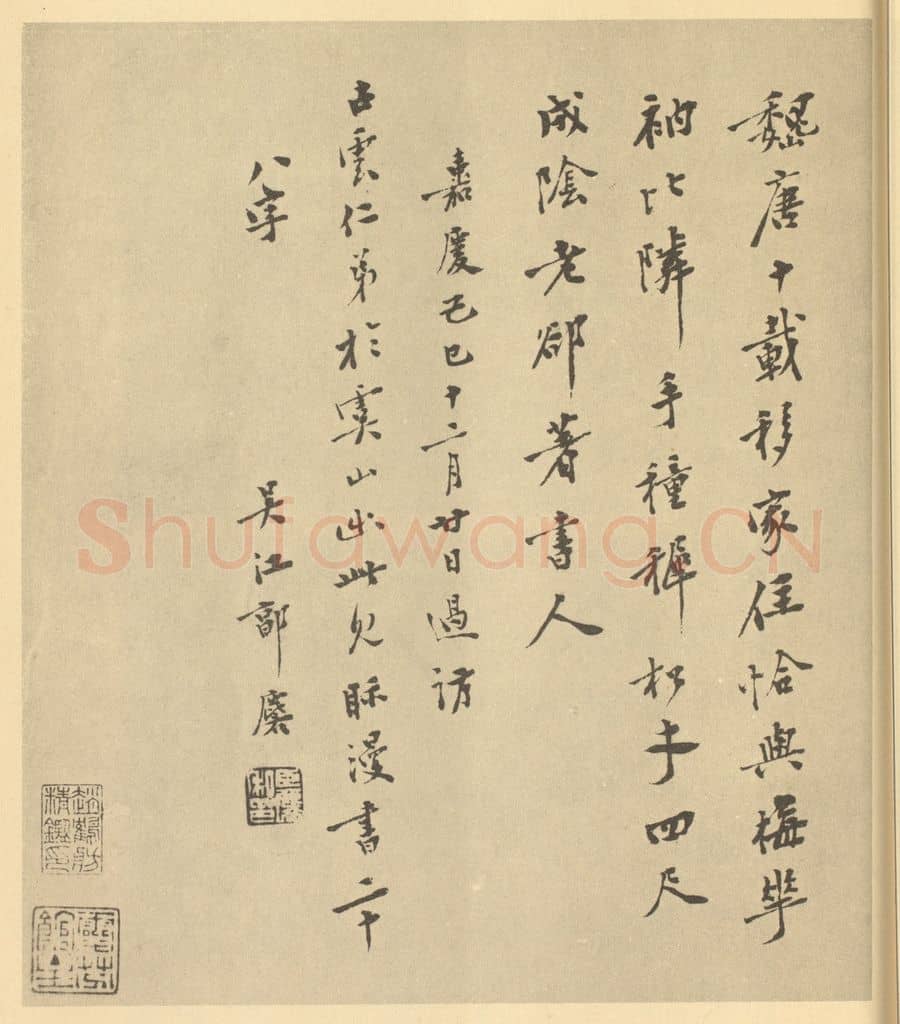 魏唐十載移家住恰與梅華
衲比隣手種穉松才四尺
成陰老郤著書人
嘉慶己巳十二月廿日過訪
古雲仁弟於虞山出此見眎漫書二十
八字
吳江郭麐
趙鶴舫精鑑印
Shufawang.CN